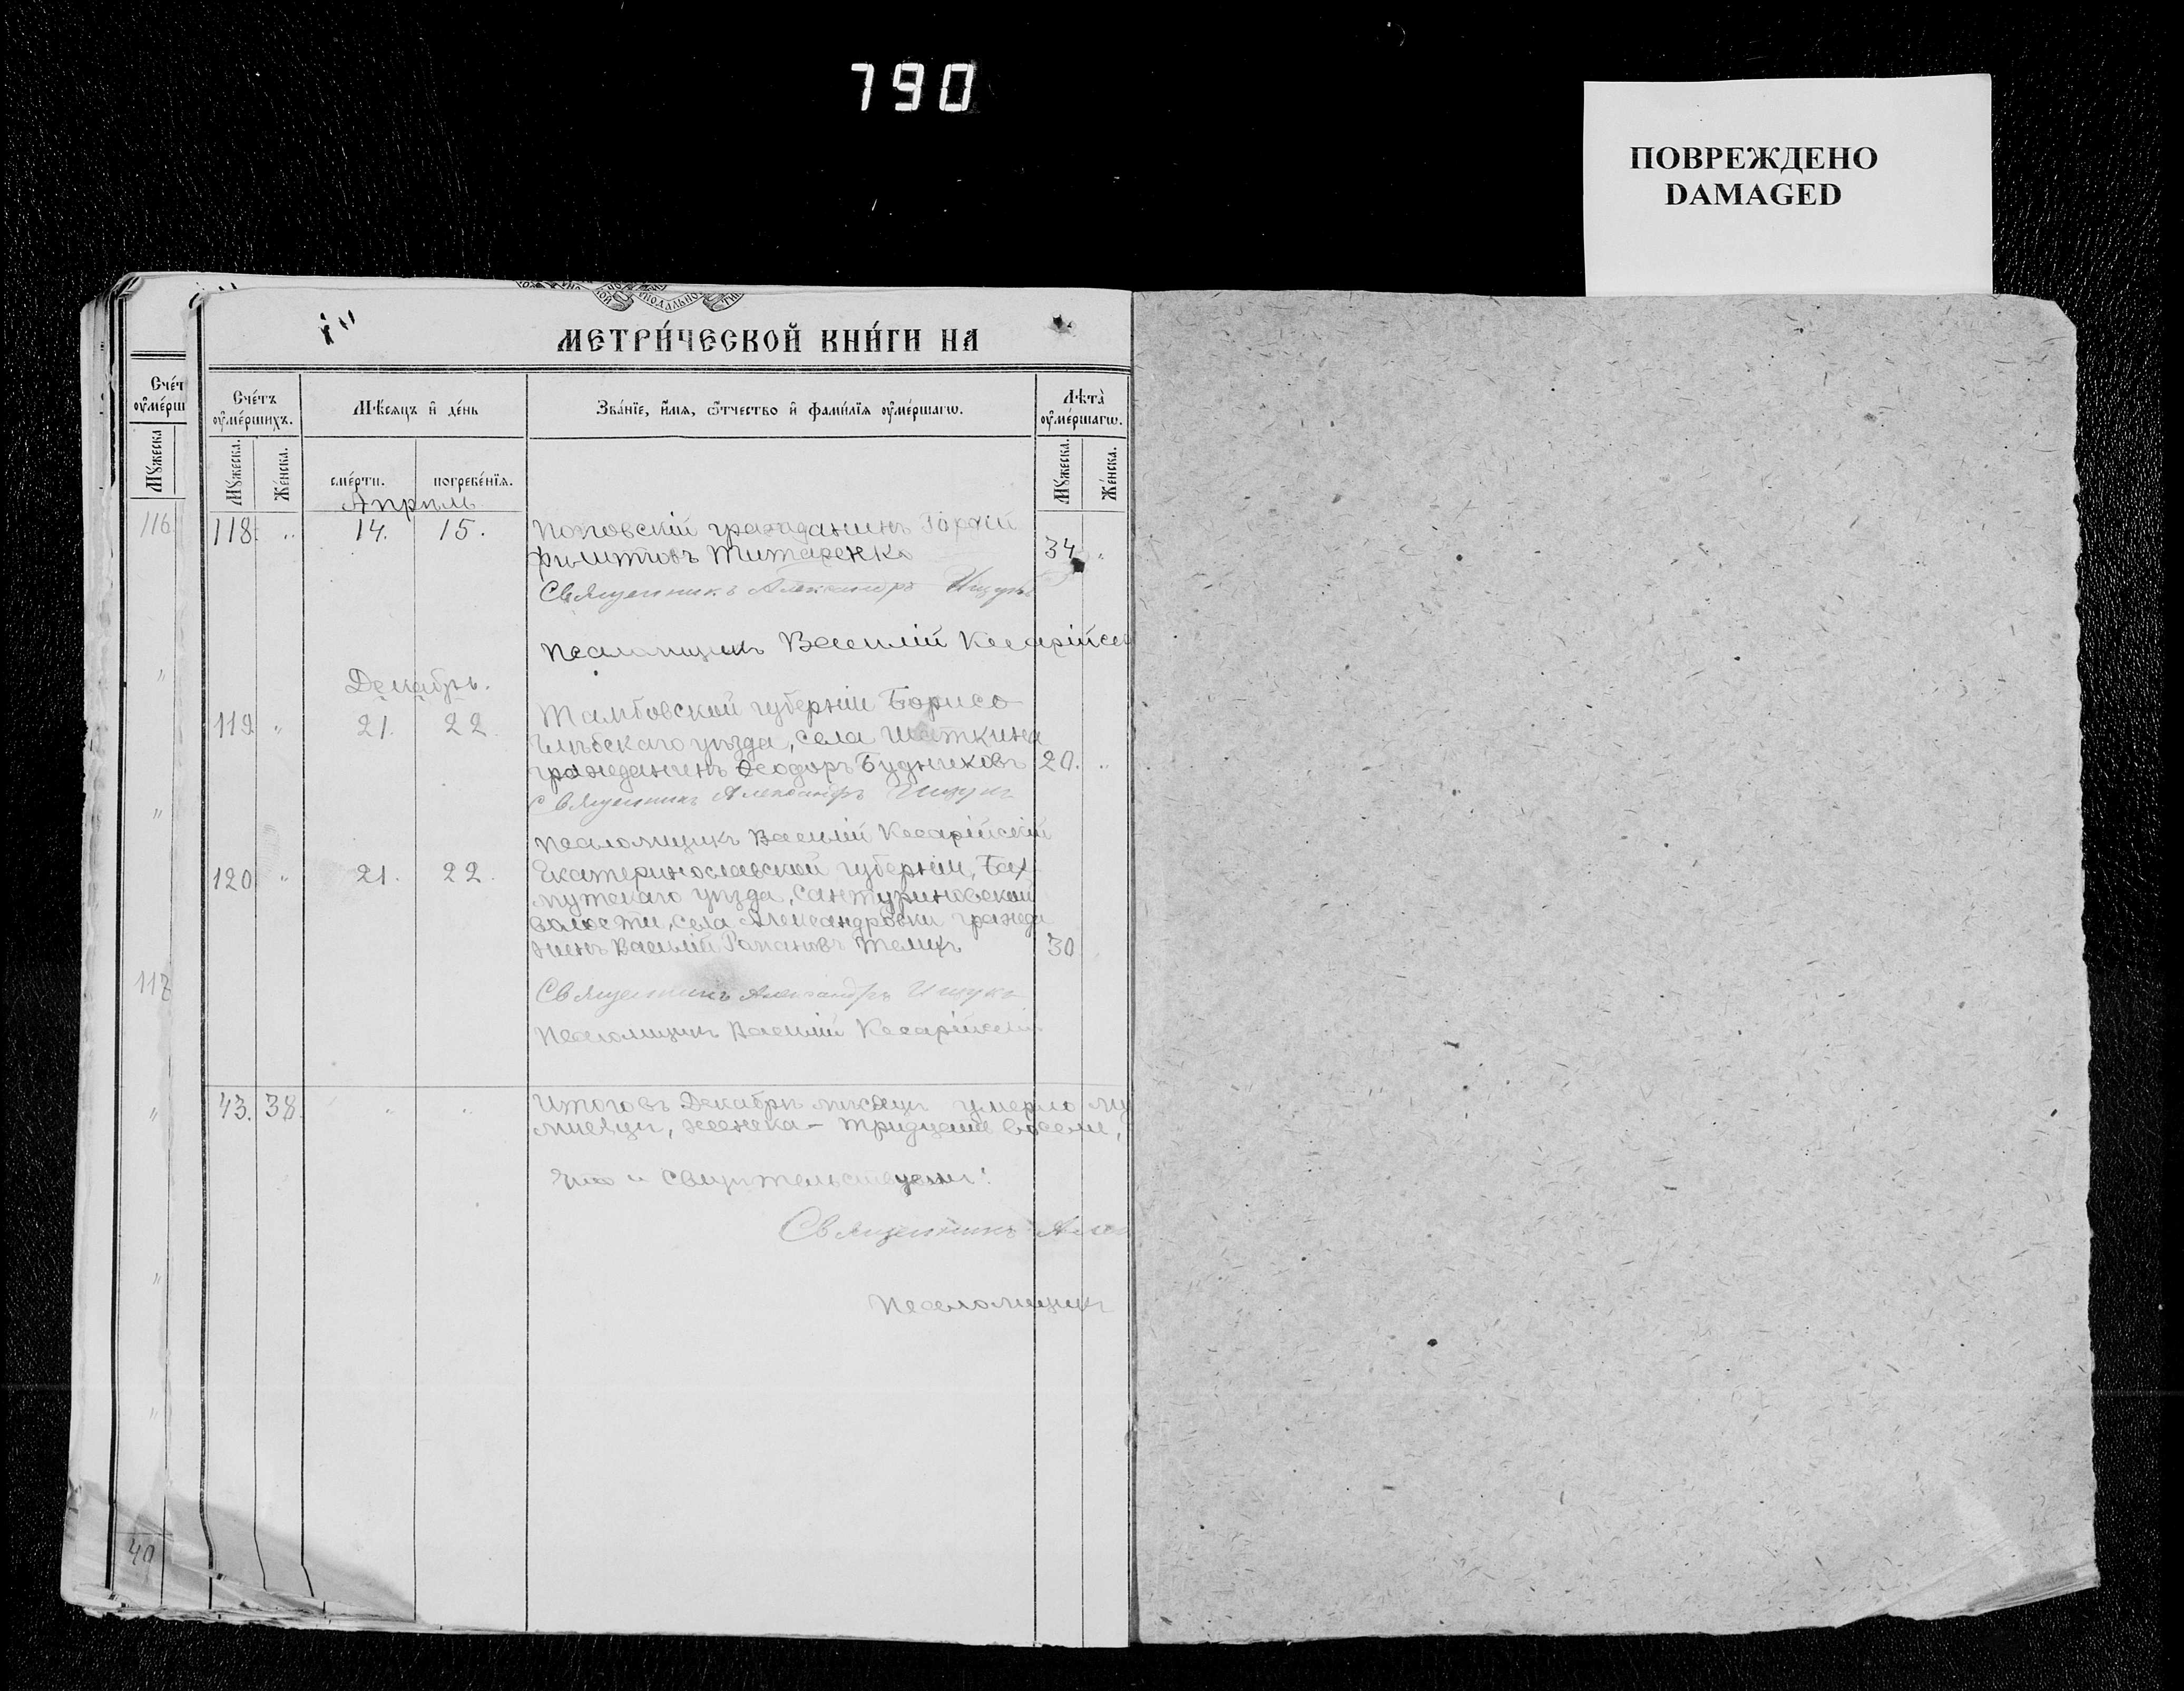 790
ПОВРЕЖДЕНО
DAMAGED
МЕТРИ́ЧЕСКОЙ КНИ́ГИ НА
Сче́т
ᲂу҆ме́рш
Сче́тъ
ᲂу҆ме́ршихъ.
Мѣ́сяцъ и҆ де́нь
Зва́нїе, и҆́мя, ѻ҆́тчество и҆ фами́лїя ᲂу҆ме́ршагѡ.
Лѣта̀
ᲂу҆ме́ршагѡ.
Мꙋ́жеска
Мꙋ́жеска.
Же́нска.
сме́рти.
погребе́нїя.
Мꙋ́жеска.
Же́нска.
Апрѣль
116
118. „ 14. 15. гражданинъ
Титаренко 34 „
Священникъ Александръ Ищукъ
Псаломщикъ Василій Кесарійск
Декабрь.
119 „ 21. 22. Тамбовской губерніи Борисо
глѣбскаго уѣзда, села
гражданинъ Ѳеодоръ Будниковъ 20. „
Священникъ Александръ Ищукъ
Псаломщикъ Василій Кесарійскій
120 „ 21. 22. Екатеринославской губерніи, Бах
мутскаго уѣзда, Сантуриновской
волости, села Александровки гражда
нинъ Василій Романовъ 30
117
Священникъ Александръ Ищукъ
Псаломщикъ Василій Кесарійскій
43. 38. „ „ Итого въ Декабрѣ мѣсяцѣ умерло му
мѣсяцѣ, женска – тридцать восемь,
Что и свидѣтельствуемъ:
Священникъ Алек
Псаломщикъ
40